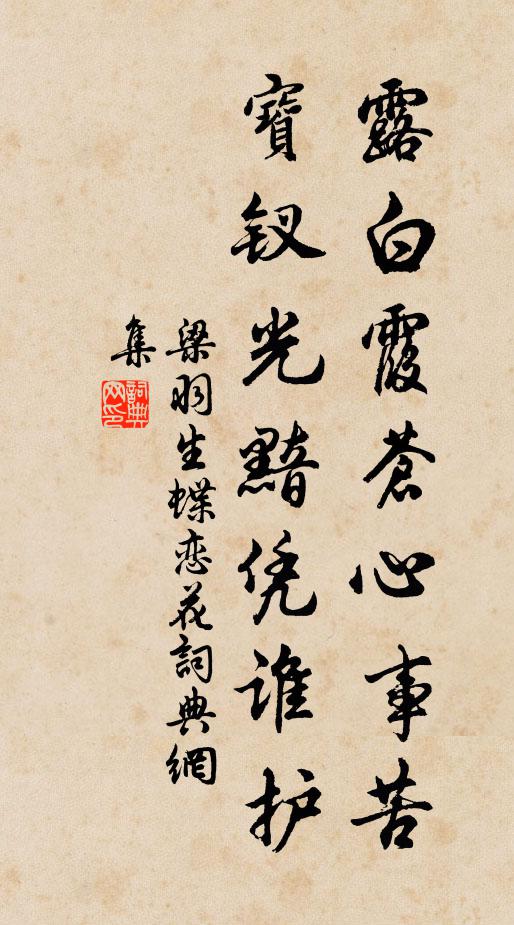 露白霞蒼心事苦
寶钗光黯凭谁护
梁羽生蝶恋花詞典網
集
詞典
网印